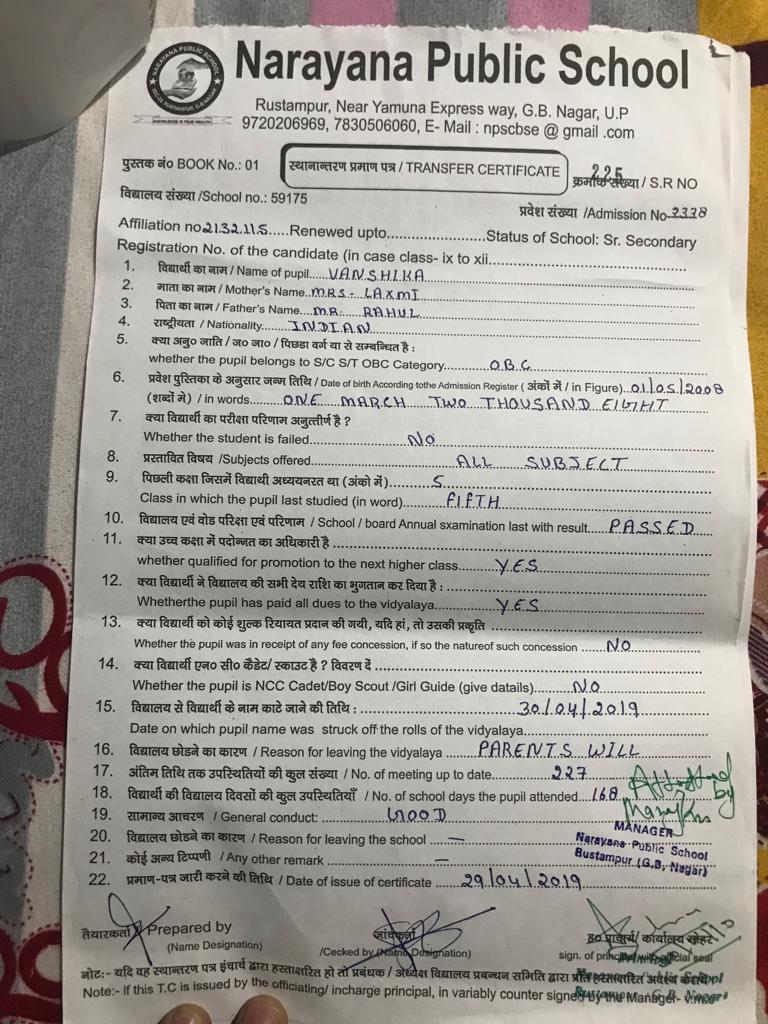 NARAYANA PUBLIC SCHOOL
KNOWLEDGE IS TRUE WEALTH
Narayana Public School
Rustampur, Near Yamuna Express way, G.B. Nagar, U.P
9720206969, 7830506060, E- Mail : npscbse @ gmail .com
पुस्तक नं० BOOK No.: 01
स्थानान्तरण प्रमाण पत्र / TRANSFER CERTIFICATE
225
क्रमांक संख्या / S.R NO
विद्यालय संख्या /School no.: 59175
प्रवेश संख्या /Admission No-2338
Affiliation no 2132115.....Renewed upto.......................Status of School: Sr. Secondary
Registration No. of the candidate (in case class- ix to xii....................................
1. विद्यार्थी का नाम / Name of pupil....VANSHIKA
2. माता का नाम / Mother's Name..MRS- LAXMI
3. पिता का नाम / Father's Name...MR. RAHUL
4. राष्ट्रीयता / Nationality......INDIAN
5. क्या अनु० जाति / ज० जा० / पिछडा वर्ग या से सम्बन्धित है :
whether the pupil belongs to S/C S/T OBC Category......O.B.C
6. प्रवेश पुस्तिका के अनुसार जन्म तिथि / Date of birth According tothe Admission Register ( अंकों में / in Figure)..01/05/2008
(शब्दों मे) / in words......ONE MARCH TWO THOUSAND EIGHT
7. क्या विद्यार्थी का परीक्षा परिणाम अनुत्तीर्ण है ?
Whether the student is failed..................NO
8. प्रस्तावित विषय /Subjects offered..................ALL SUBJECT
9. पिछली कक्षा जिसमें विद्यार्थी अध्ययनरत था (अंको में).......5
Class in which the pupil last studied (in word)........FIFTH
10. विद्यालय एवं वोड परिक्षा एवं परिणाम / School / board Annual examination last with result....PASSED
11. क्या उच्च कक्षा में पदोन्नत का अधिकारी है ....................
whether qualified for promotion to the next higher class.......YES
12. क्या विद्यार्थी ने विद्यालय की सभी देय राशि का भुगतान कर दिया है : ...............
Whetherthe pupil has paid all dues to the vidyalaya.......YES
13. क्या विद्यार्थी को कोई शुल्क रियायत प्रदान की गयी, यदि हां, तो उसकी प्रकृति .................
Whether the pupil was in receipt of any fee concession, if so the natureof such concession ....NO
14. क्या विद्यार्थी एन० सी० कैडेट/ स्काउट है ? विवरण दें .................
Whether the pupil is NCC Cadet/Boy Scout /Girl Guide (give datails).......NO
15. विद्यालय से विद्यार्थी के नाम काटे जाने की तिथि : ..................30/04/2019
Date on which pupil name was struck off the rolls of the vidyalaya.................
16. विद्यालय छोडने का कारण / Reason for leaving the vidyalaya ....PARENTS WILL
17. अंतिम तिथि तक उपस्थितियों की कुल संख्या / No. of meeting up to date.........227
18. विद्यार्थी की विद्यालय दिवसों की कुल उपस्थितियाँ / No. of school days the pupil attended...168
Attested by
19. सामान्य आचरण / General conduct: ......GOOD
MANAGER
Narayana Public School
Rustampur (G.B, Nagar)
20. विद्यालय छोडने का कारण / Reason for leaving the school ...—
21. कोई अन्य टिप्पणी / Any other remark .......—
22. प्रमाण-पत्र जारी करने की तिथि / Date of issue of certificate ....29/04/2019
तैयारकर्ता Prepared by
(Name Designation)
जांचकर्ता
/Cecked by (Name Designation)
ह० प्राचार्य/ कार्यालय मोहर
sign. of principal with official seal
नोट:- यदि वह स्थान्तरण पत्र इंचार्ज द्वारा हस्ताक्षरित हो तो प्रबंधक / अध्यक्ष विद्यालय प्रबन्धन समिति द्वारा प्रति हस्ताक्षरित अवश्य
Note:- if this T.C is issued by the officiating/ incharge principal, in variably counter signed by the Manager-